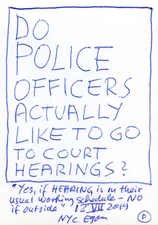 DO
POLICE
OFFICERS
ACTUALLY
LIKE TO GO
TO COURT
HEARINGS?
"Yes, if HEARING is in their
usual working schedule - NO
if outside" 12 VII 2019
NYC Egon
P